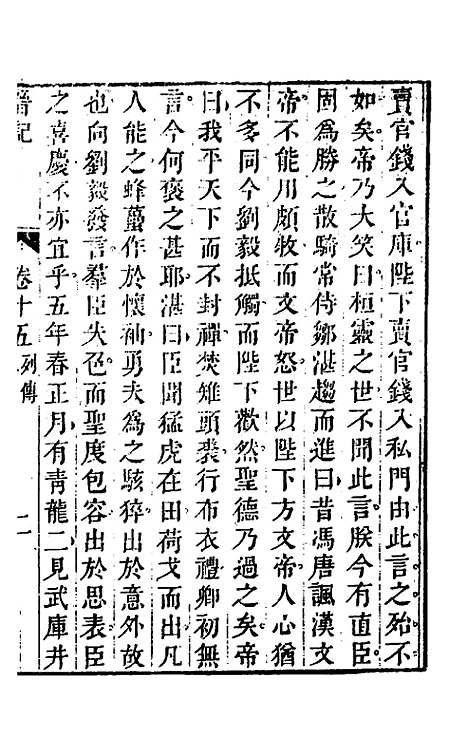 賣官錢入官庫陛下賣官錢入私門由此言之殆不
如矣帝乃大笑曰桓靈之世不聞此言朕今有直臣
固爲勝之散騎常侍鄒湛趨而進曰昔馮唐諷漢文
帝不能用頗牧而文帝怒世以陛下方文帝人心猶
不多同今劉毅抵觸而陛下歡然聖德乃過之矣帝
曰我平天下而不封禪焚雉頭裘行布衣禮卿初無
言今何褒之甚耶湛曰臣聞猛虎在田荷戈而出凡
人能之蜂蠆作於懷袖勇夫爲之駭猝出於意外故
也向劉毅發言羣臣失色而聖度包容出於思表臣
之喜慶不亦宜乎五年春正月有青龍二見武庫井
晉記 卷十五 列傳 二